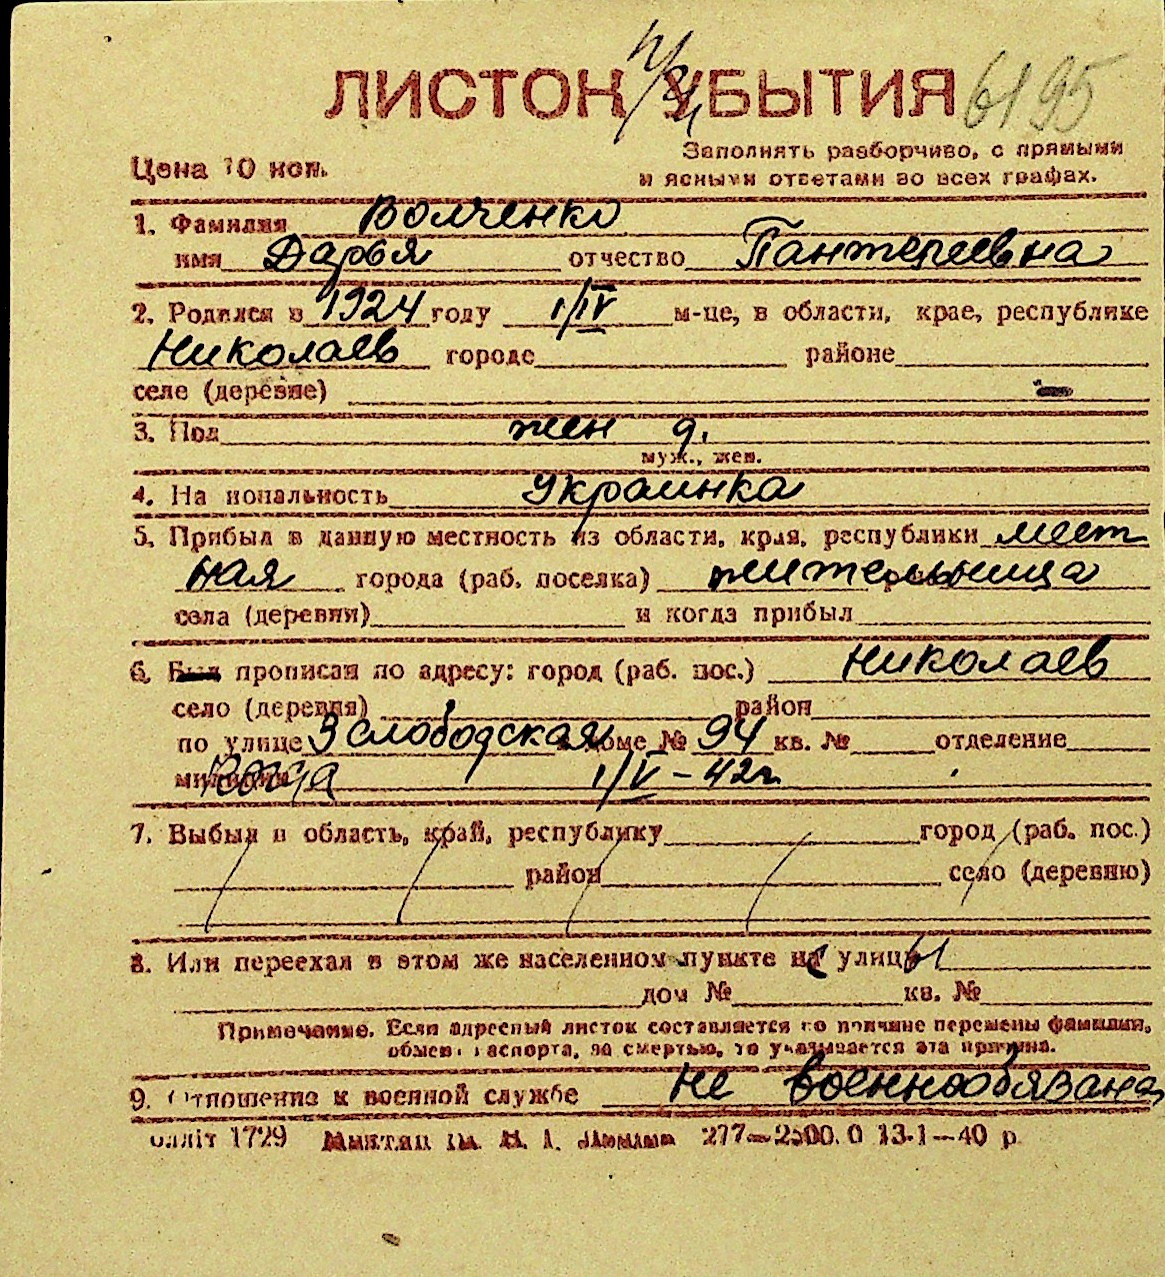 ЛИСТОК УБЫТИЯ 6195
Цена 10 коп.
Заполнять разборчиво, с прямыми
и ясными ответами во всех графах.
1. Фамилия Волченко
имя Дарья отчество Пантелеевна
2. Родился в 1924 году 1/IV м-це, в области, крае, республике
Николаев городе районе
селе (деревне)
3. Пол жен
муж., жен.
4. Национальность Украинка
5. Прибыл в данную местность из области, края, республики мест
ная города (раб. поселка) жительница
села (деревни) и когда прибыл
6. Был прописан по адресу: город (раб. пос.) Николаев
село (деревня) район
по улице 3 Слободская в доме № 94 кв. № отделение
милиции 1/V-42г.
7. Выбыл в область, край, республику город (раб. пос.)
район село (деревню)
8. Или переехал в этом же населенном пункте улицы
дом № кв. №
Примечание. Если адресный листок составляется по причине перемены фамилии,
обмена паспорта, за смертью, то указывается эта причина.
9. Отношение к военной службе не военнообязана
1729 277—2500.0 13-1—40 р